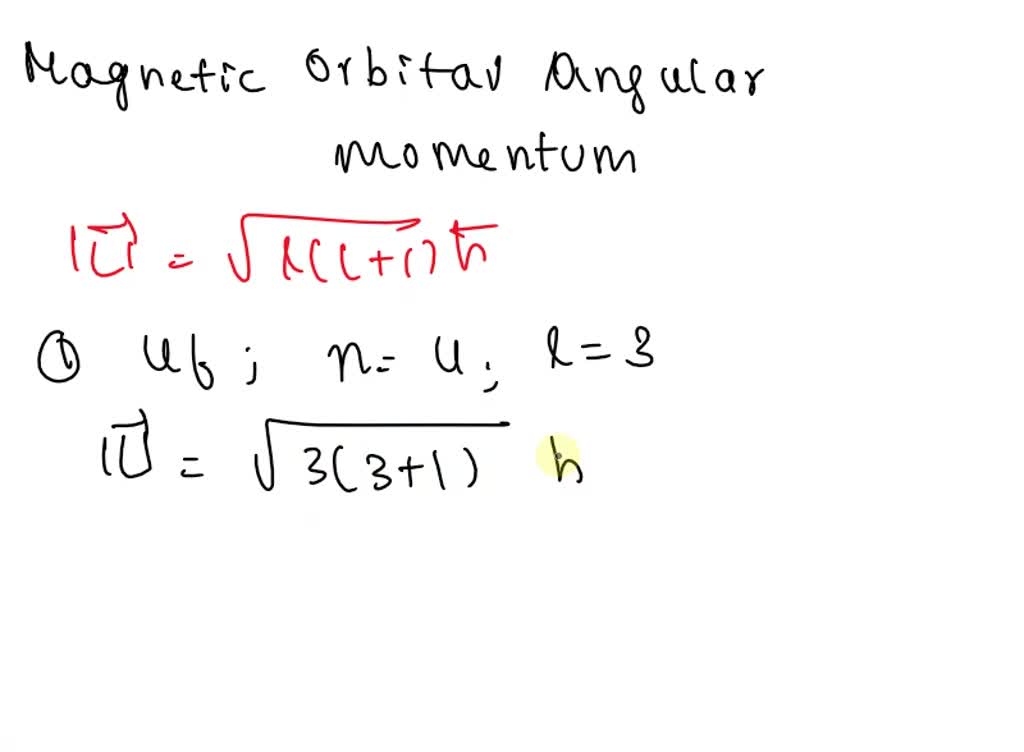 Magnetic Orbital Angular
momentum
|L⃗| = √l(l+1) ħ
① 4f ; n = 4 ; l = 3
|L⃗| = √3(3+1) h